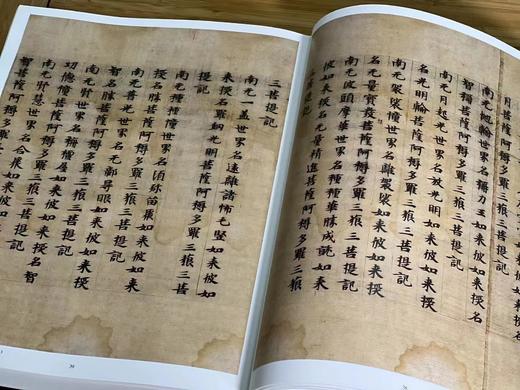 南无地輪世界名稱力王如来彼如来授名
智稱菩薩阿耨多羅三藐三菩提記
南无月起光世界放光明如来彼如来授
名光明輪菩薩阿耨多羅三藐三菩提記
南无袈裟幢世界名離袈裟如来彼如来授
名无量寶發菩薩阿耨多羅三藐三菩提記
南无波頭摩華世界名種種華勝成就如来
彼如来授名无量精進菩薩阿耨多羅三藐
三菩提記
三菩提記
南无一盖世界名遠離諸怖毛竪如来彼如
来授名羅網光明菩薩阿耨多羅三藐三菩
提記
南无種種幢世界名須弥留聚如来彼如来
授名勝菩薩阿耨多羅三藐三菩提記
南无普光世界名无鄣尋眼如来彼如来授
智名勝菩薩阿耨多羅三藐三菩提記
南无世界名栴檀屋如来彼如来授名
功德幢菩薩阿耨多羅三藐三菩提記
南无賢慧世界名合聚如来彼如来授名智
菩薩阿耨多羅三藐三菩提記